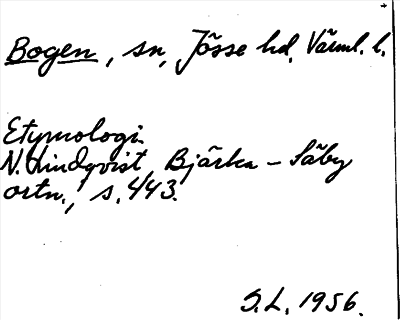 Bogen, sn, Jösse hd, Värml. l.
Etymologi.
N. Lindqvist, Bjärka - Säby
ortn., s. 443.
S.L. 1956.